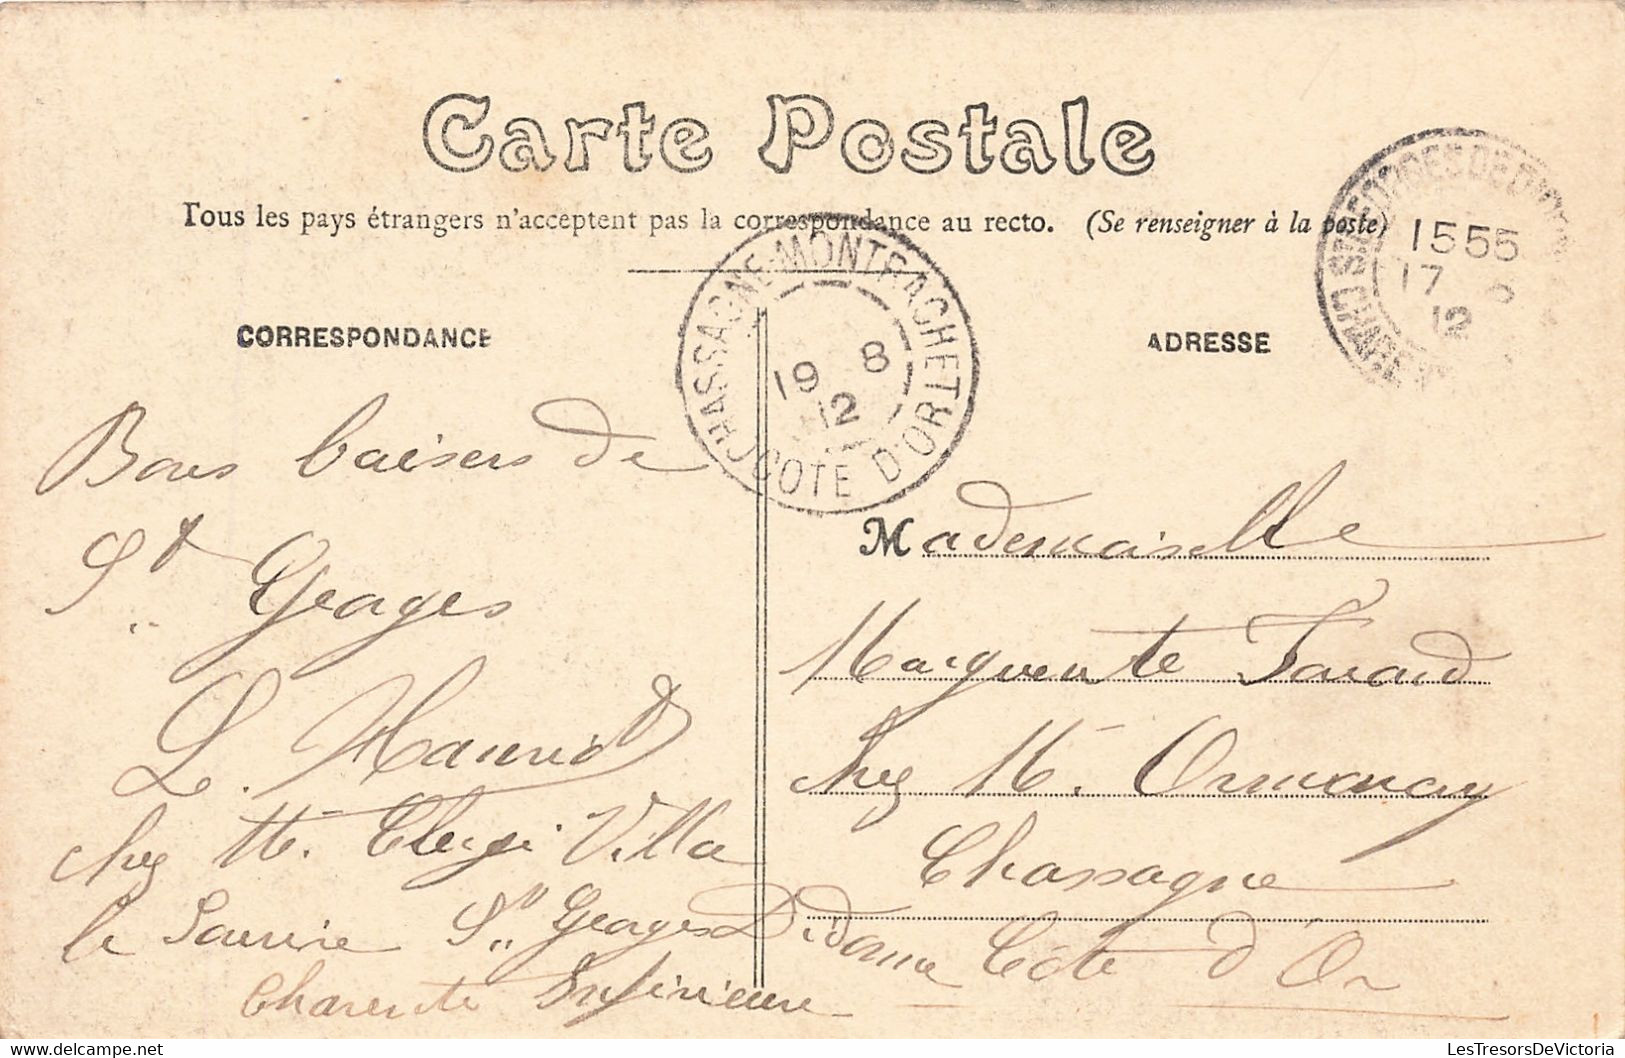 Carte Postale
Tous les pays étrangers n'acceptent pas la correspondance au recto. (Se renseigner à la poste)
CORRESPONDANCE
ADRESSE
CHASSAGNE-MONTRACHET
19 8
12
COTE D'OR
ST GEORGES DE DIDONNE
1555
17 8
12
CHARENTE
Bons baisers de
St Georges
L.
chez Mr. Villa
le Sourire St Georges Didonne
Charente Inférieure
Mademoiselle
Marguerite
chez M. Ormancey
Chassagne
Côte d'Or
LesTresorsDeVictoria